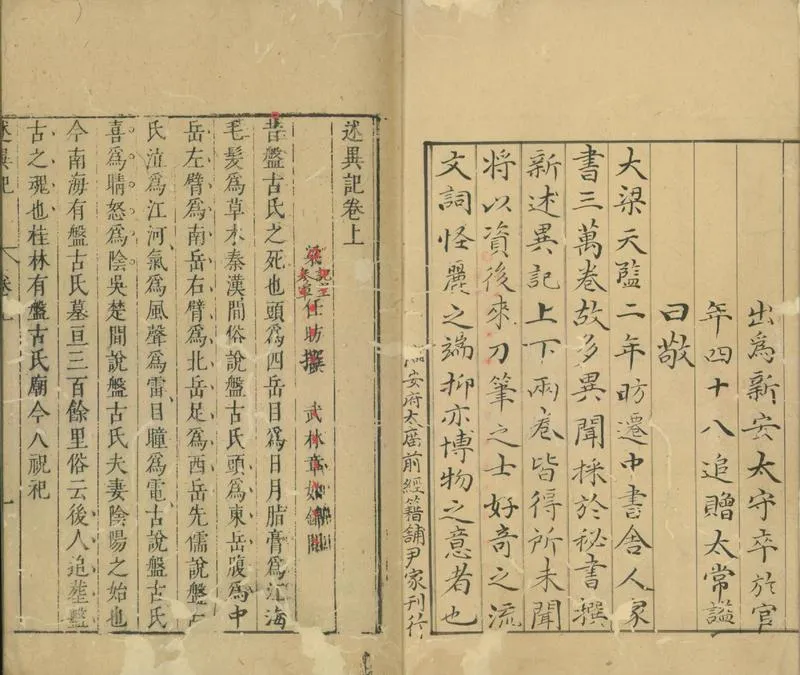 出爲新安太守卒於官
年四十八追贈太常謚
曰敬
大梁天監二年昉遷中書舍人家
書三萬卷故多異聞採於秘書撰
新述異記上下兩卷皆得所未聞
將以資後來刀筆之士好奇之流
文詞怪麗之端抑亦博物之意者也
臨安府太廟前經籍鋪尹家刊行
述異記卷上
梁記室參軍任昉撰 武林章如錦閱
昔盤古氏之死也頭爲四岳目爲日月脂膏爲江海
毛髮爲草木秦漢間俗說盤古氏頭爲東岳腹爲中
岳左臂爲南岳右臂爲北岳足爲西岳先儒說盤古
氏泣爲江河氣爲風聲爲雷目瞳爲電古說盤古氏
喜爲晴怒爲陰吳楚間說盤古氏夫妻陰陽之始也
今南海有盤古氏墓亘三百餘里俗云後人追葬盤
古之魂也桂林有盤古氏廟今人祝祀
述異記 卷上 一